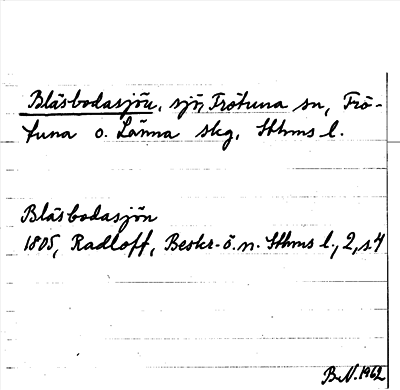 Bläsbodasjön, sjö, Frötuna sn, Frö-
tuna o. Länna skg, Sthms l.
Bläsbodasjön
1805, Radloff, Beskr. ö. n. Sthms l., 2, s 4
B.N. 1962